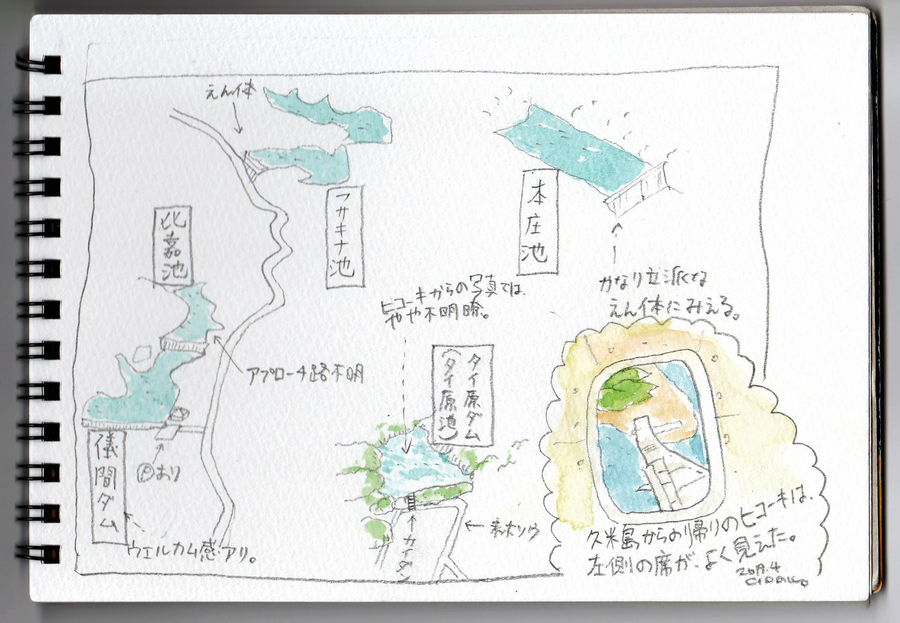 えん体
フサキナ池
本庄池
かなり立派な
えん体にみえる。
比嘉池
ヒコーキからの写真では、
やや不明瞭。
アプローチ路不明
タイ原ダム
(タイ原池)
儀間ダム
Ⓟあり
ウェルカム感アリ。
未ホソウ
カイダン
久米島からの帰りのヒコーキは、
左側の席が、よく見えた。
2019.4